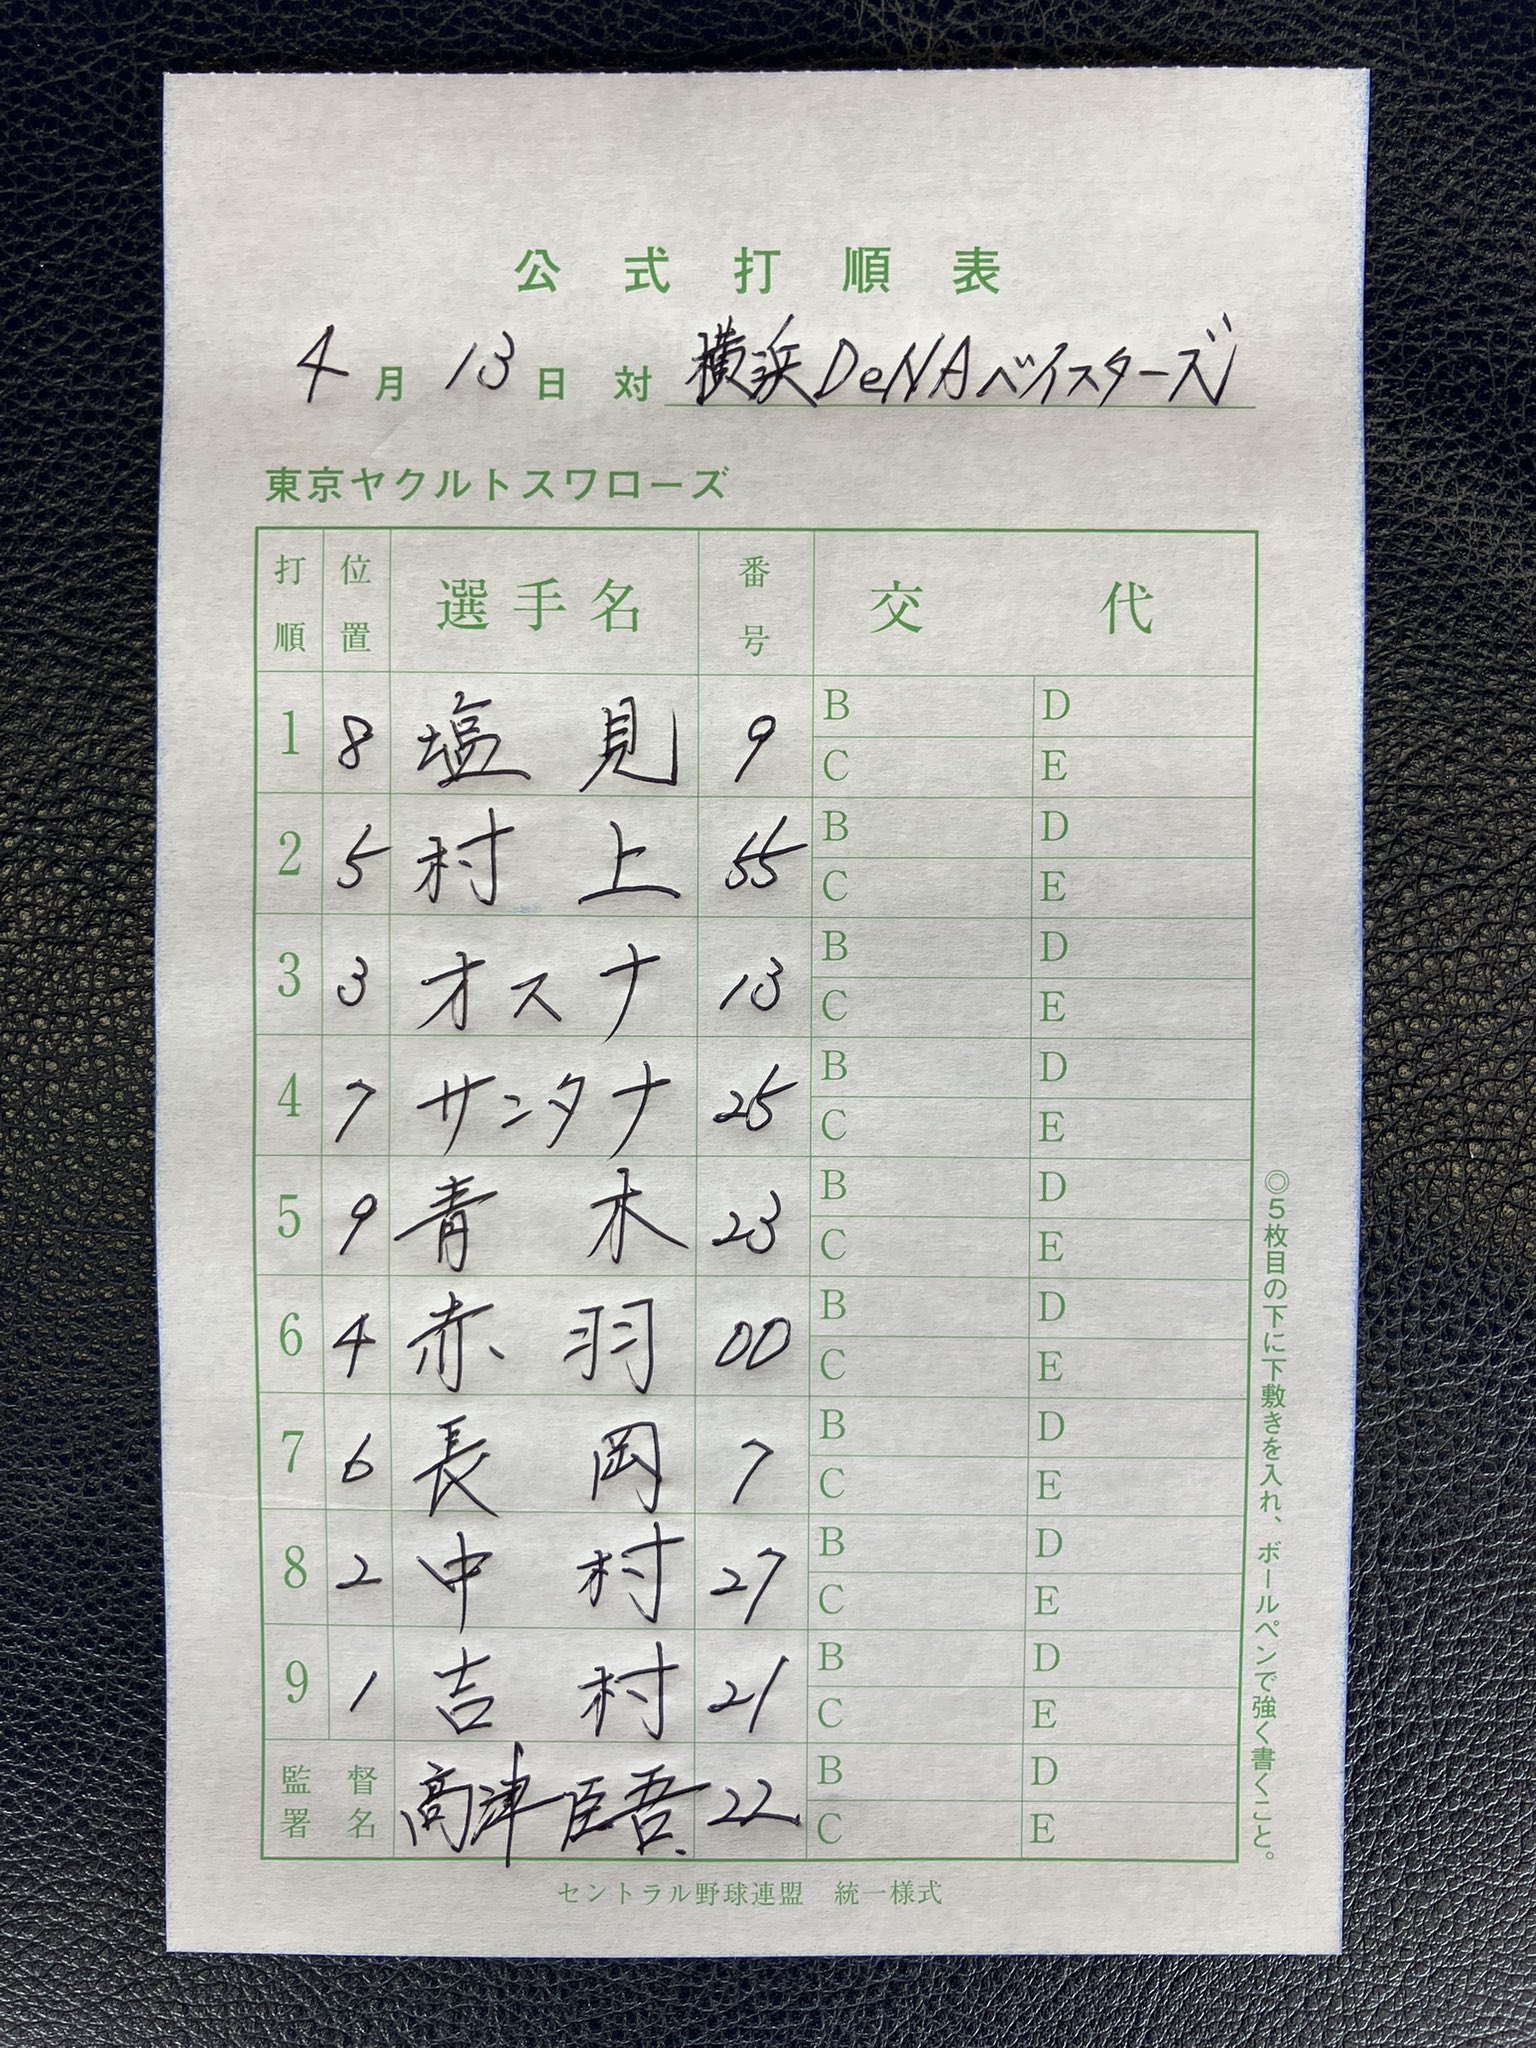 公式打順表
4月13日 対 横浜DeNAベイスターズ
東京ヤクルトスワローズ
打順 位置 選手名 番号 交代
1 8 塩見 9 B D C E
2 5 村上 55 B D C E
3 3 オスナ 13 B D C E
4 7 サンタナ 25 B D C E
5 9 青木 23 B D C E
6 4 赤羽 00 B D C E
7 6 長岡 7 B D C E
8 2 中村 27 B D C E
9 1 吉村 21 B D C E
監督署名 高津臣吾 22 B D C E
◎5枚目の下に下敷きを入れ、ボールペンで強く書くこと。
セントラル野球連盟 統一様式